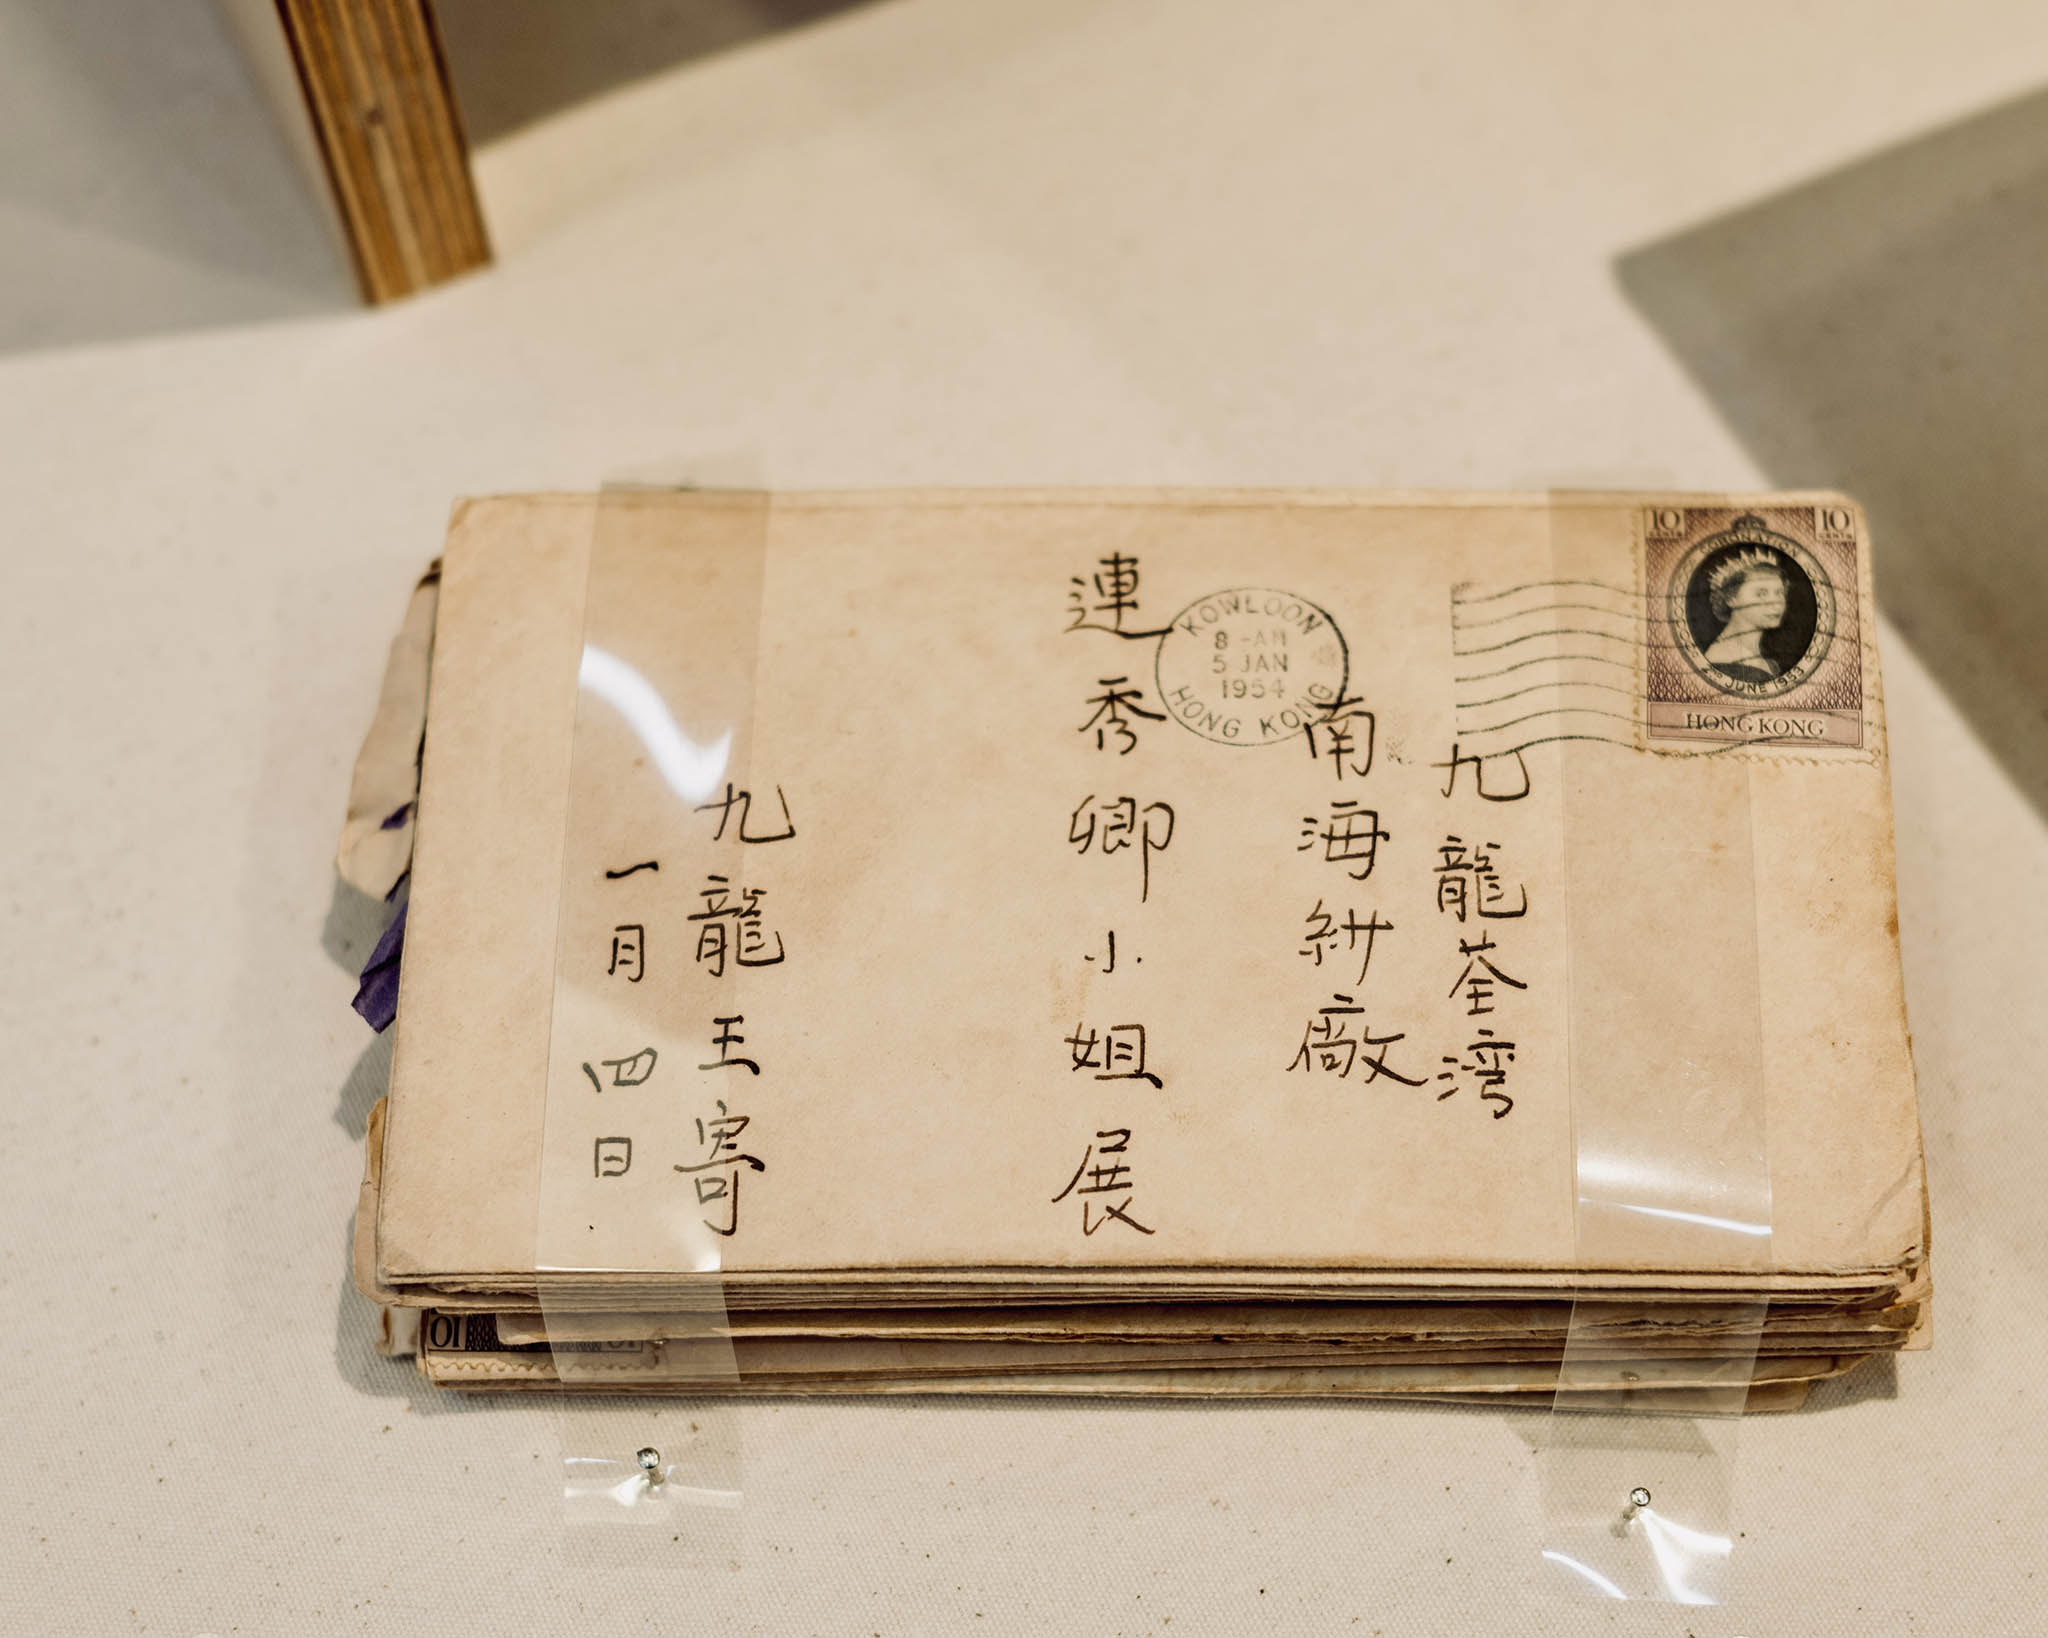 九龍荃湾
南海紗廠
連秀卿小姐展
九龍王寄
一月四日
KOWLOON
8-AM
5 JAN
1954
HONG KONG
10 CENTS 10 CENTS
CORONATION
2ND JUNE 1953
HONG KONG
10 10